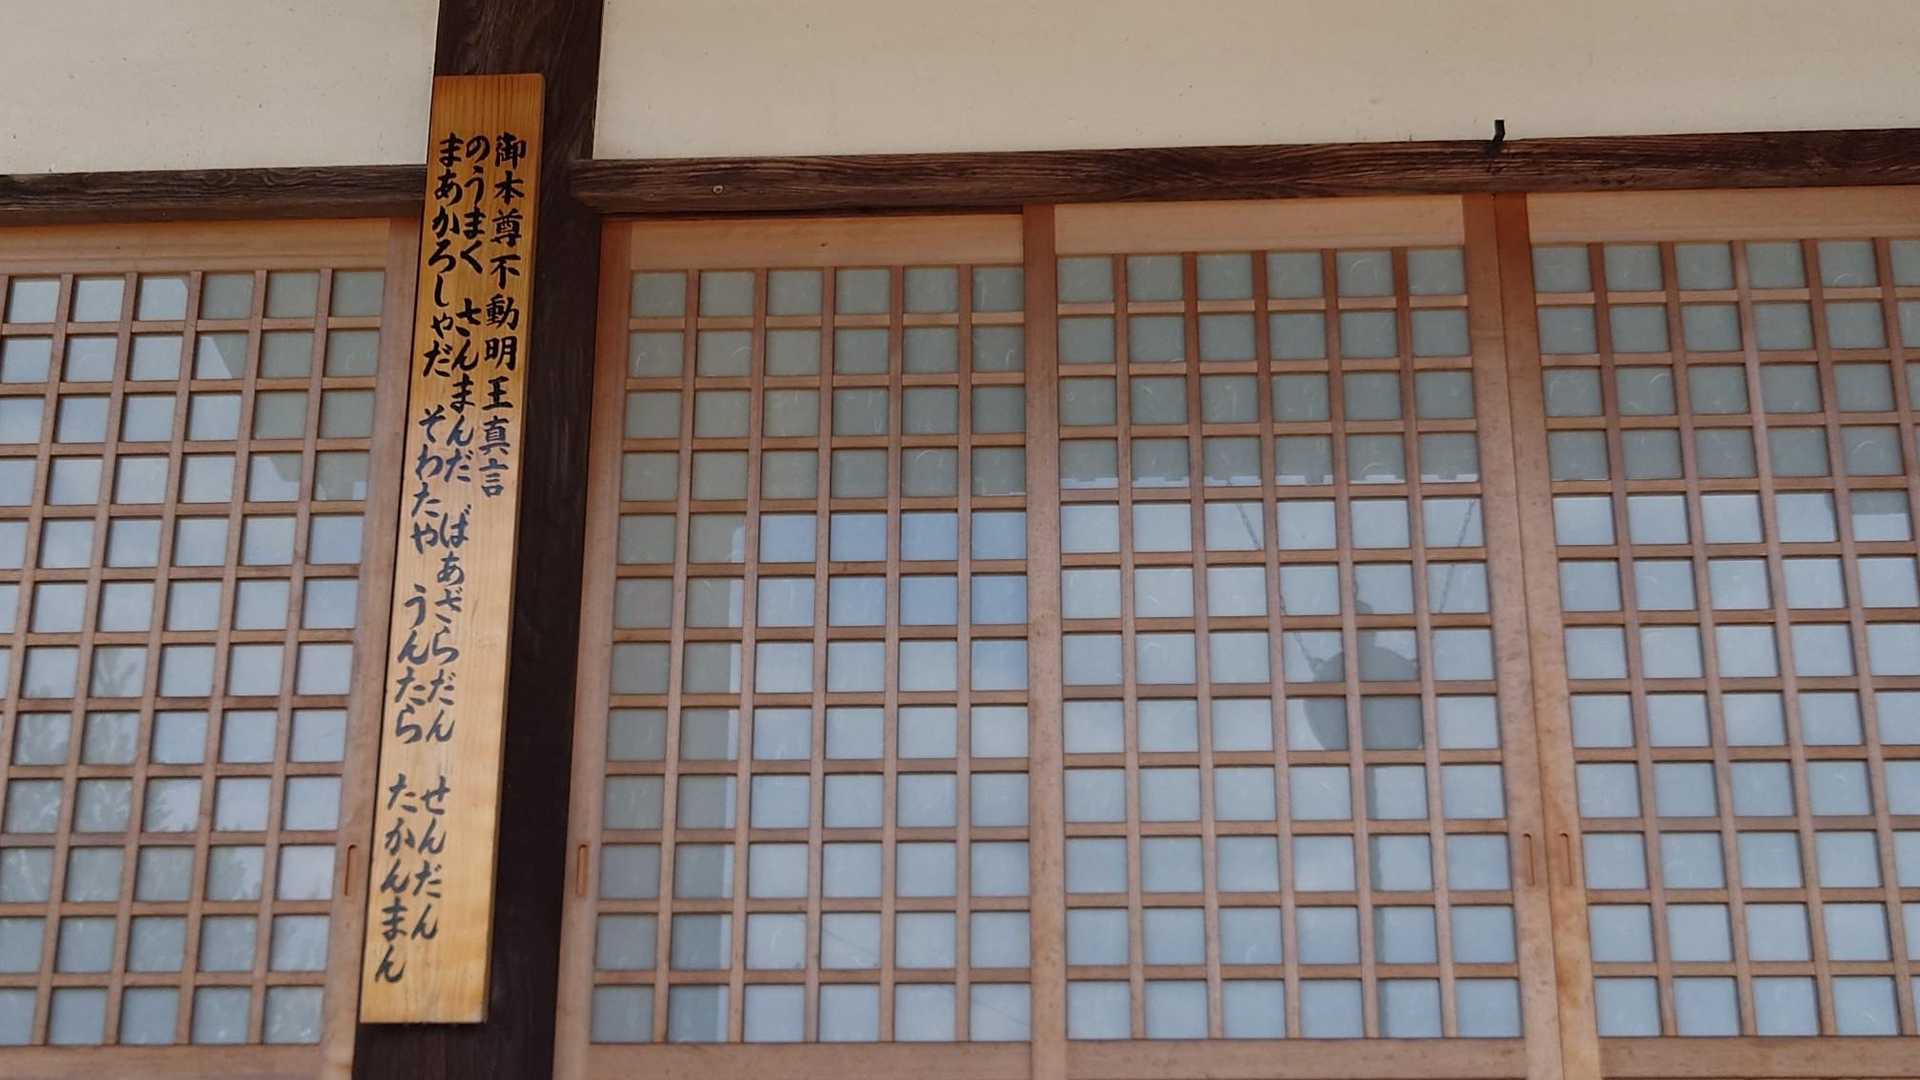 御本尊不動明王真言
のうまく さんまんだ ばあざらだん せんだん
まあかろしゃだ そわたや うんたら たかんまん